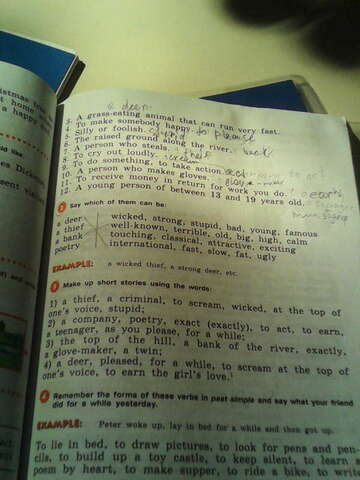 a deer
3. A grass-eating animal that can run very fast.
4. To make somebody happy. to please
5. Silly or foolish.
6. The raised ground along the river. bank
7. A person who steals. thief
8. To cry out loudly.
9. To do something, to take action.
10. A person who makes gloves.
11. To receive money in return for work you do.
12. A young person of between 13 and 19 years old.
Say which of them can be:
a deer wicked, strong, stupid, bad, young, famous
a thief well-known, terrible, old, big, high, calm
a bank touching, classical, attractive, exciting
poetry international, fast, slow, fat, ugly
EXAMPLE: a wicked thief, a strong deer, etc.
Make up short stories using the words:
1) a thief, a criminal, to scream, wicked, at the top of
one's voice, stupid;
2) a company, poetry, exact (exactly), to act, to earn,
a teenager, as you please, for a while;
3) the top of the hill, a bank of the river, exactly,
a glove-maker, a twin;
4) a deer, pleased, for a while, to scream at the top of
one's voice, to earn the girl's love.¹
Remember the forms of these verbs in past simple and say what your friend
did for a while yesterday.
EXAMPLE: Peter woke up, lay in bed for a while and then got up.
To lie in bed, to draw pictures, to look for pens and pen-
cils, to build up a toy castle, to keep silent, to learn a
poem by heart, to make supper, to ride a bike, to write